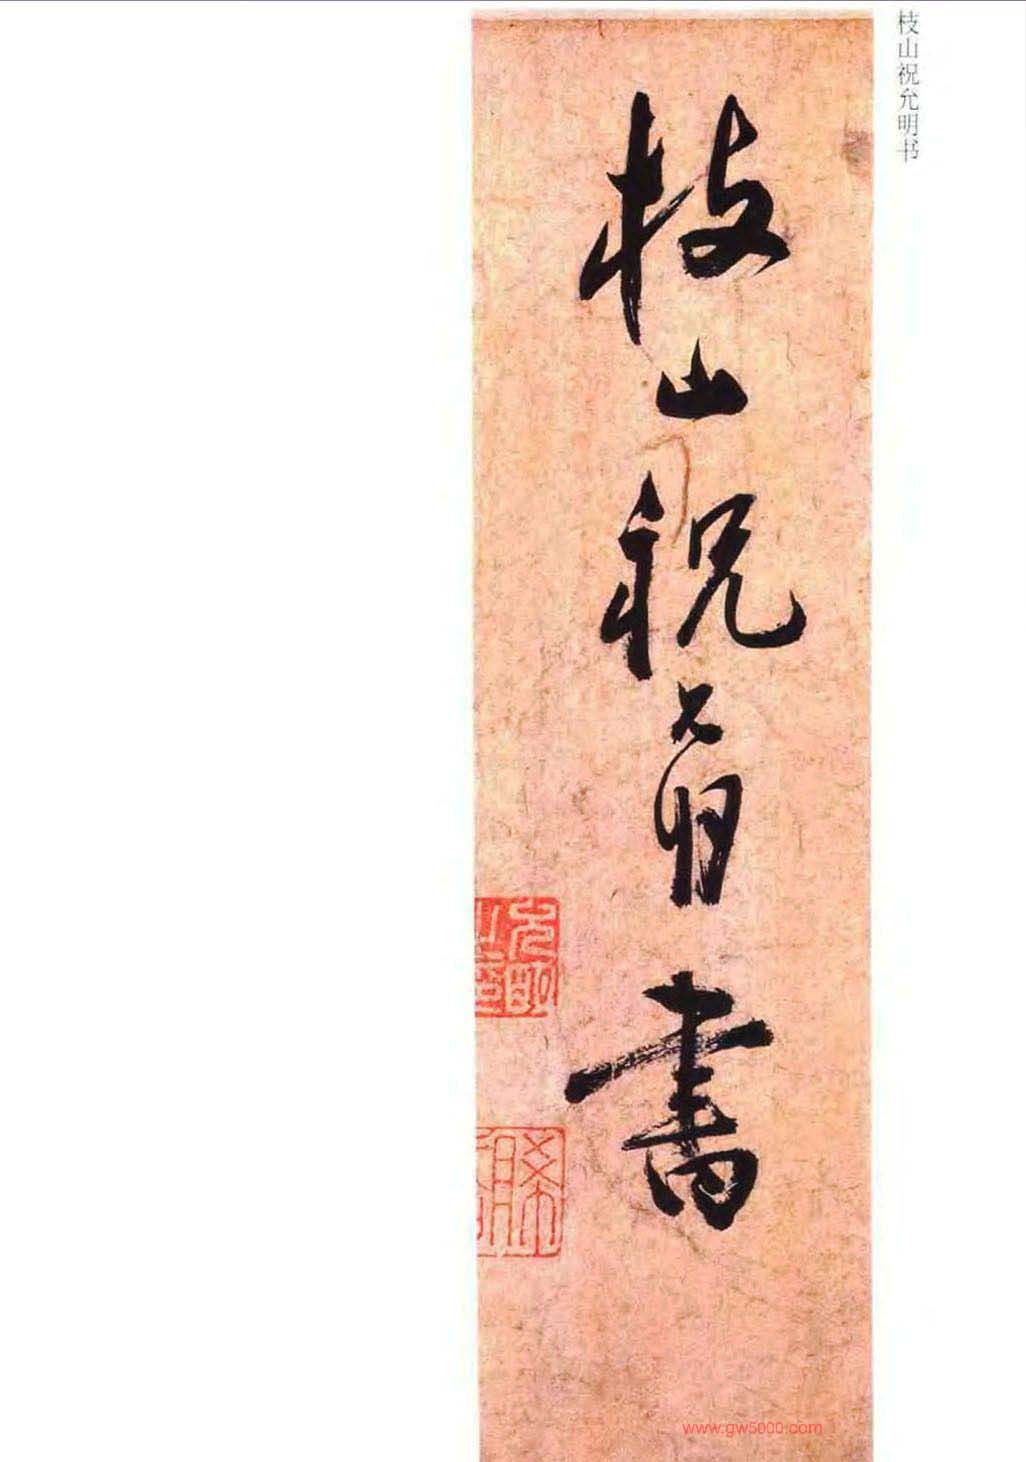 枝山祝允明书
枝山祝允明書
允明
www.gw5000.com